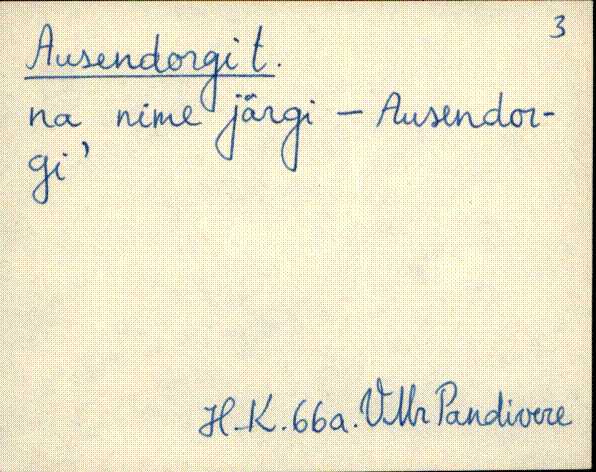 3
Ausendorgi t.
na nime järgi – Ausendor-
gi'
H.K. 66a. VMr Pandivere